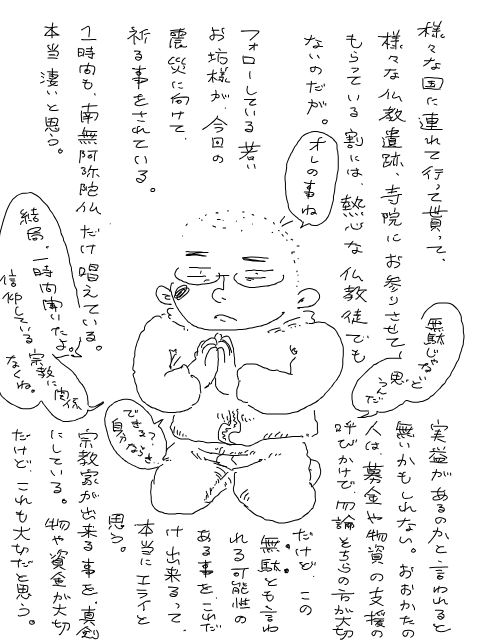 様々な国に連れて行って貰って、
様々な仏教遺跡、寺院にお参りさせて
もらっている割には、熱心な仏教徒でも
ないのだが。
オレの事ね
フォローしている若い
お坊様が、今回の
震災に向けて、
祈る事をされている。
1時間も、南無阿弥陀仏だけ唱えている。
本当凄いと思う。
結局、一時間聞いたよ。
信仰している
宗教に関係
なくね。
無駄じゃね？
と
思
うんだ
実益があるのかと言われると
無いかもしれない。おおかたの
人は、募金や物資の支援の
呼びかけで、勿論そちらの方が大切
だけど、この
無駄とも言わ
れる可能性の
ある事を、これだ
け出来るって、
本当にエライと
思う。
できる？
自分なら
宗教家が出来る事を、真剣
にしている。物や資金が大切
だけど、これも大切だと思う。